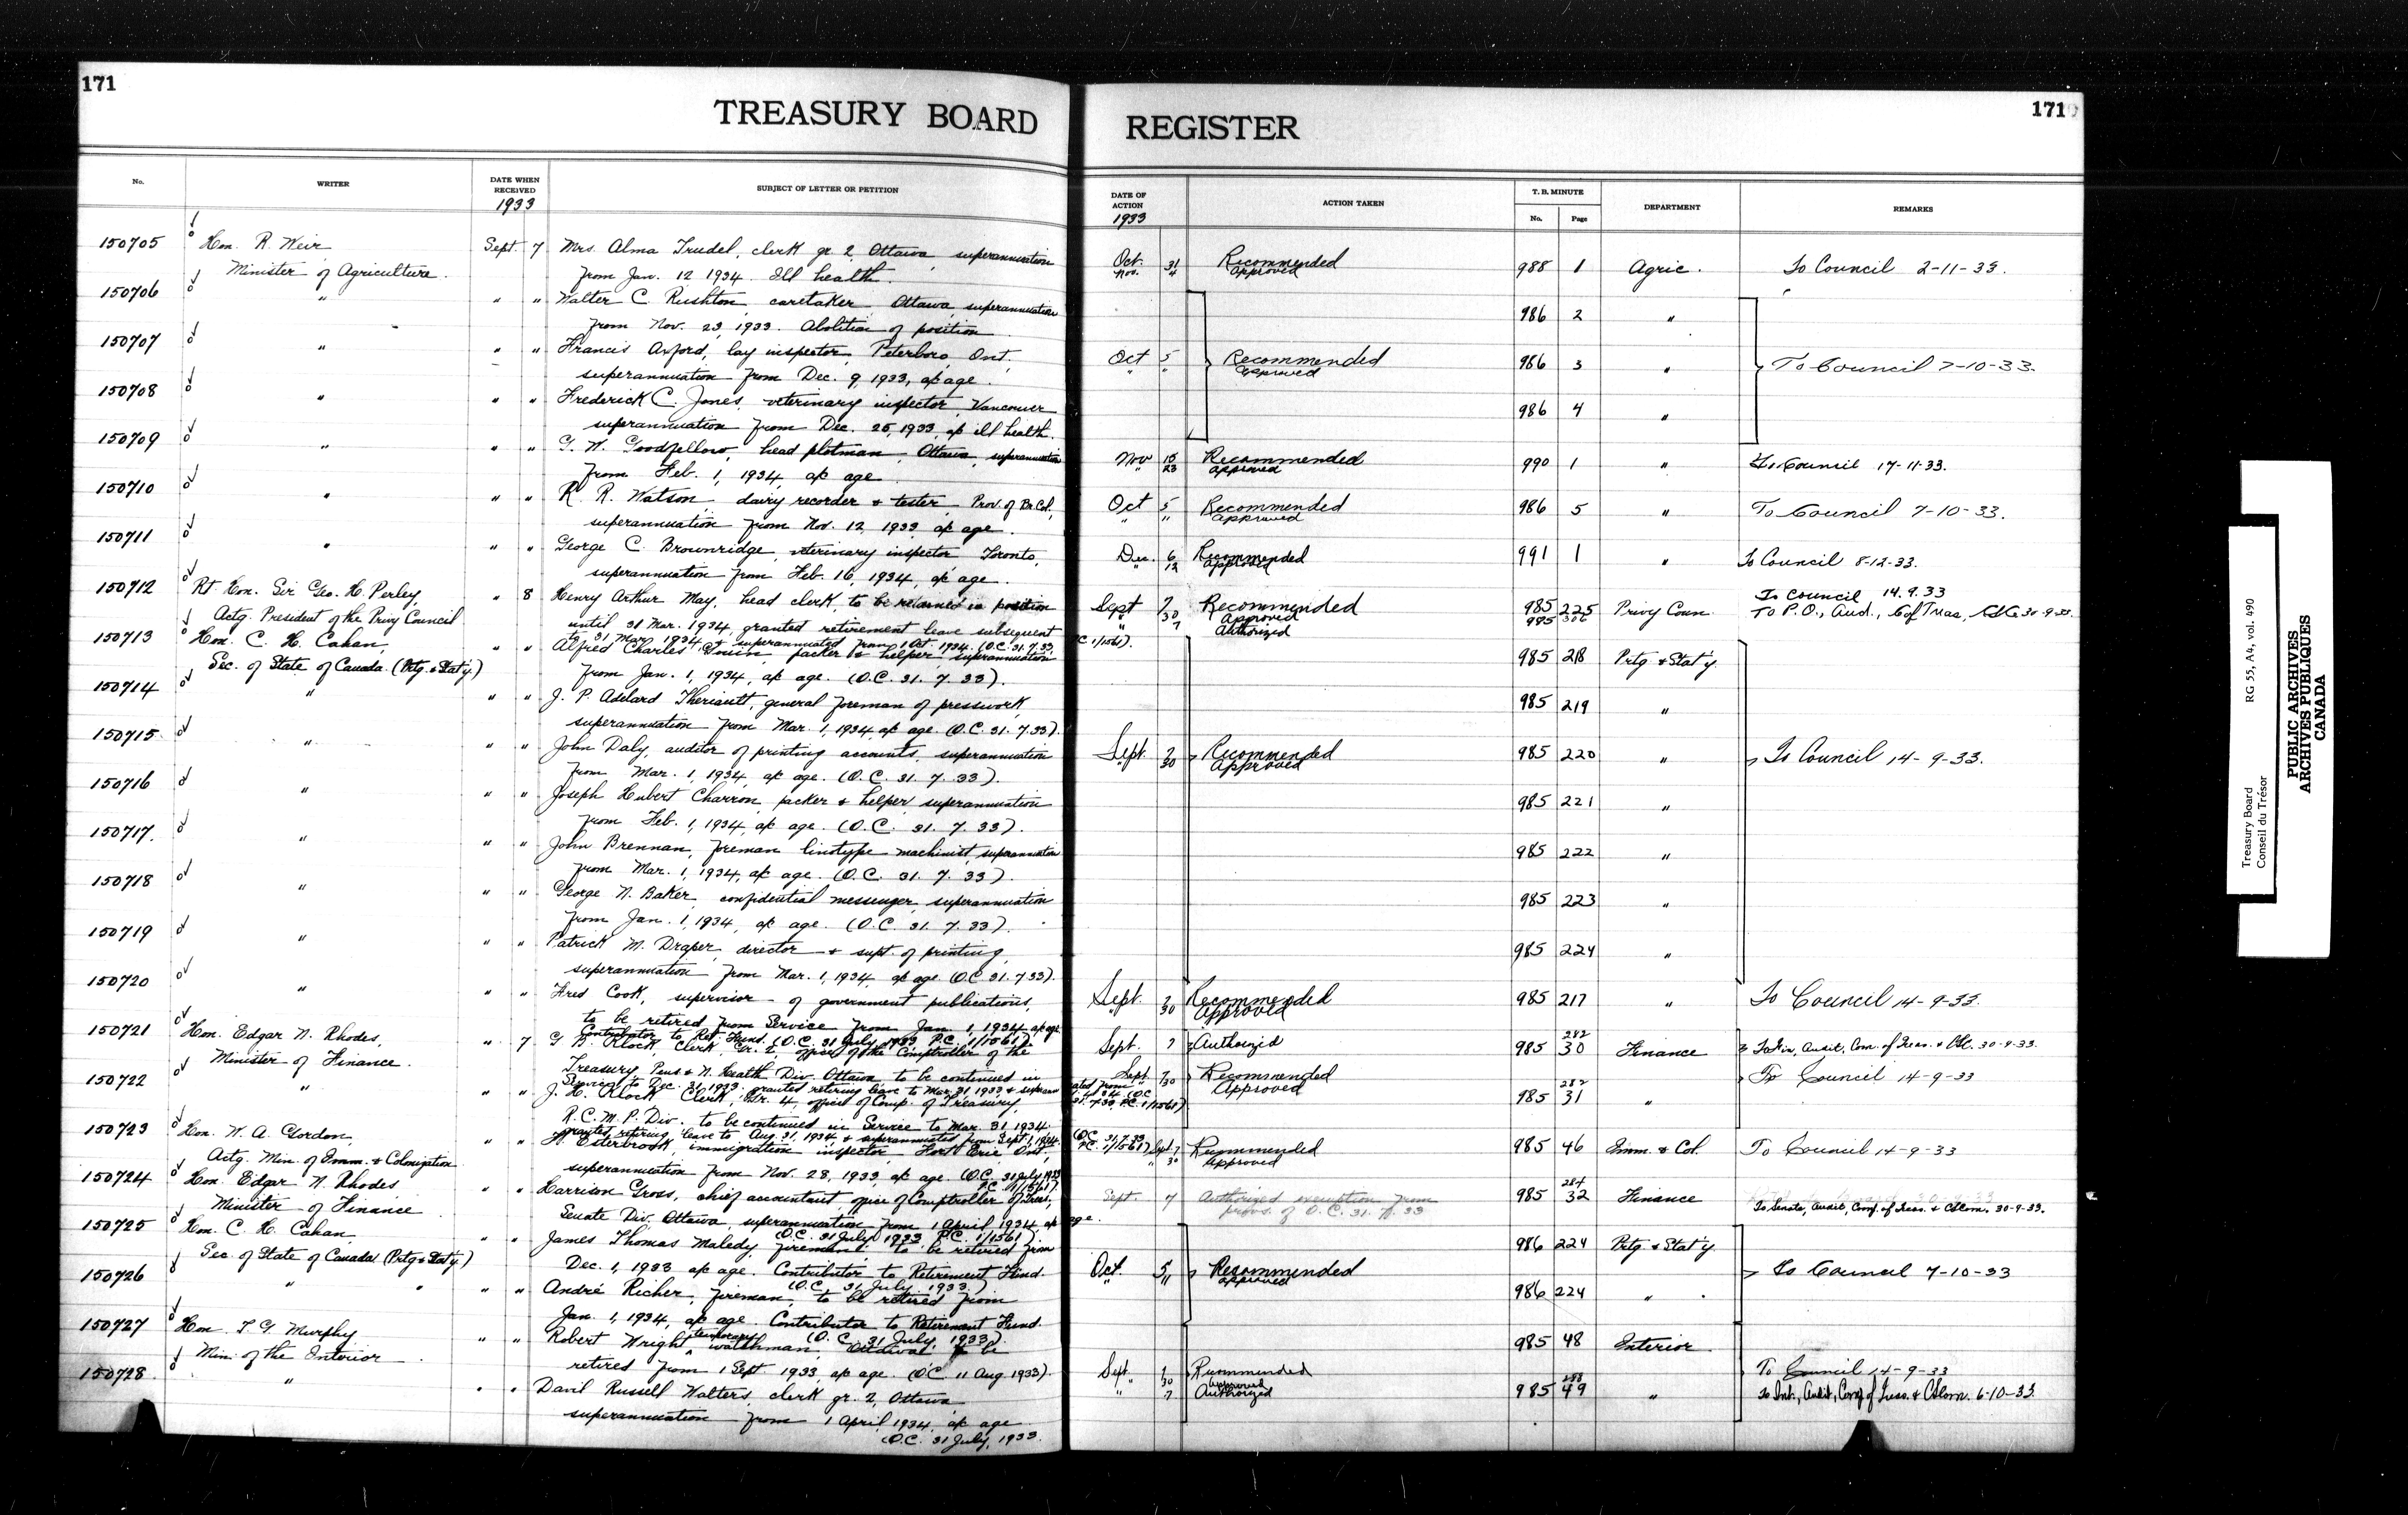 171
TREASURY BOARD
No.
WRITER
DATE WHEN RECEIVED
1933
SUBJECT OF LETTER OR PETITION
150705 Hon. R. Weir Sept. 7 Mrs. Alma Trudel, clerk gr. 2, Ottawa, superannuation
Minister of Agriculture from Jan. 12 1934. Ill health.
150706 " " " Walter C. Rushton, caretaker Ottawa, superannuation
from Nov. 23, 1933. Abolition of position
150707 " " " Francis Axford, lay inspector, Peterboro Ont.,
superannuation from Dec. 9, 1933, a/c age.
150708 " " " Frederick C. Jones, veterinary inspector, Vancouver
superannuation from Dec. 25, 1933, a/c ill health.
150709 " " " G. W. Goodfellow, head plotman, Ottawa, superannuation
from Feb. 1, 1934, a/c age
150710 " " " R. R. Watson, dairy recorder & tester, Prov. of Br. Col.,
superannuation from Nov. 12, 1933, a/c age.
150711 " " " George C. Brownridge, veterinary inspector, Toronto,
superannuation from Feb. 16, 1934, a/c age.
150712 Rt. Hon. Sir Geo. H. Perley, " 8 Henry Arthur May, head clerk, to be retained in position
Actg. President of the Privy Council until 31 Mar. 1934, granted retirement leave subsequent
to 31 Mar. 1934 & superannuated from 1 Oct. 1934. (O.C. 31.7.33,
P.C. 1/1561).
150713 Hon. C. H. Cahan, " " Alfred Charles packer & helper superannuation
Sec. of State of Canada. (Prtg. & Stat'y.) from Jan. 1, 1934, a/c age. (O.C. 31. 7. 33).
150714 " " " J. P. Adelard Theriault, general foreman of presswork,
superannuation from Mar. 1, 1934, a/c age. (O.C. 31. 7.33).
150715 " " " John Daly, auditor of printing accounts, superannuation
from Mar. 1, 1934, a/c age. (O.C. 31. 7. 33).
150716 " " " Joseph Hubert Charron, packer & helper, superannuation
from Feb. 1, 1934, a/c age. (O.C. 31. 7. 33).
150717. " " " John Brennan, foreman linotype machinist, superannuation
from Mar. 1, 1934, a/c age. (O.C. 31. 7. 33).
150718 " " " George N. Baker, confidential messenger, superannuation
from Jan. 1, 1934, a/c age. (O.C. 31. 7. 33).
150719 " " " Patrick M. Draper, director & supt. of printing,
superannuation from Mar. 1, 1934 a/c age. (O.C. 31. 7.33).
150720 " " " Fred Cook, supervisor of government publications,
to be retired from Service from Jan 1, 1934 a/c age
Contributor to Ret. Fund. (O.C. 31 July 1933, P.C. 1/1561).
150721 Hon. Edgar N. Rhodes, " 7 G. B. Klock, Clerk, Gr. 2, office of the Comptroller of the
Minister of Finance. Treasury, Pens & N. Health Div. Ottawa to be continued in
Service to Dec. 31, 1933, granted retiring leave to Mar. 31 1933 & superann
150722 " " " J. H. Klock Clerk, Gr. 4, office of Comp. of Treasury,
R.C.M.P. Div. to be continued in Service to Mar. 31 1934
granted retiring leave to Aug. 31, 1934 & superannuated from Sept. 1, 1934
150723 Hon. W. A. Gordon, " " Esterbrook, immigration inspector, Fort Erie Ont.,
Actg. Min. of Imm. & Colonization superannuation from Nov. 28, 1933, a/c age (O.C. 31 July 1933
P.C. 1/1561).
150724 Hon. Edgar N. Rhodes " " Harrison Gross, chief accountant, office of Comptroller of Treas.,
Minister of Finance Senate Div. Ottawa, superannuation from 1 April 1934, a/c age.
(O.C. 31 July 1933 P.C. 1/1561).
150725 Hon. C. H. Cahan, " " James Thomas Maledy, fireman, to be retired from
Sec. of State of Canada (Prtg & Stat'y.) Dec. 1, 1933 a/c age. Contributor to Retirement Fund.
(O.C. 31 July 1933.)
150726 " " " " André Richer, fireman, to be retired from
Jan. 1, 1934, a/c age. Contributor to Retirement Fund.
(O.C. 31 July, 1933).
150727 Hon. T. G. Murphy " " Robert Wright temporary watchman, Ottawa, to be
Min. of the Interior retired from 1 Sept 1933, a/c age. (O.C. 11 Aug. 1933).
150728 " " " David Russell Walters, clerk gr. 2, Ottawa
superannuation from 1 April, 1934, a/c age
(O.C. 31 July, 1933.
171
REGISTER
DATE OF ACTION
1933
ACTION TAKEN
T. B. MINUTE
No. Page
DEPARTMENT
REMARKS
Oct. 31 Recommended 988 1 Agric. To Council 2-11-33.
Nov. 4 Approved
986 2 "
Oct 5 Recommended 986 3 " To Council 7-10-33.
" " Approved
986 4 "
Nov 15 Recommended 990 1 " To Council 17-11-33.
" 23 Approved
Oct 5 Recommended 986 5 " To Council 7-10-33.
" 11 Approved
Dec. 6 Recommended 991 1 " To Council 8-12-33.
" 12 Approved
To Council 14.9.33
Sept 7 Recommended 985 225 Privy Coun. To P.O., Aud., C of Treas, CSC 30-9-33.
" 30 Approved 985 306
" 7 Authorized
985 218 Prtg & Stat'y
985 219 "
Sept. 7 Recommended 985 220 " To Council 14-9-33.
" 30 Approved
985 221 "
985 222 "
985 223 "
985 224 "
Sept. 7 Recommended 985 217 " To Council 14-9-33.
" 30 Approved
282
Sept. 7 Authorized 985 30 Finance To Fin, Audit, Com. of Treas. & CSC. 30-9-33.
Sept. 7 Recommended To Council 14-9-33
" 30 Approved
282
985 31 "
(O.C. 31.7.33
P.C. 1/1561) Sept. 7 Recommended 985 46 Imm. & Col. To Council 14-9-33
" 30 Approved
284
Sept. 7 Authorized exemption from 985 32 Finance
provs. of O.C. 31. 7. 33 To Senate, Audit, Comp. of Treas. & CSCom. 30-9-33.
986 224 Prtg. & Stat'y
Oct. 5 Recommended To Council 7-10-33
" 11 Approved
986 224 "
985 48 Interior
Sept. 7 Recommended To Council 14-9-33
" 30 Approved
" 7 Authorized 985 49 " To Int., Audit, Comp of Treas. & CSCom. 6-10-33.
RG 55, A4, vol. 490
Treasury Board
Conseil du Trésor
PUBLIC ARCHIVES
ARCHIVES PUBLIQUES
CANADA